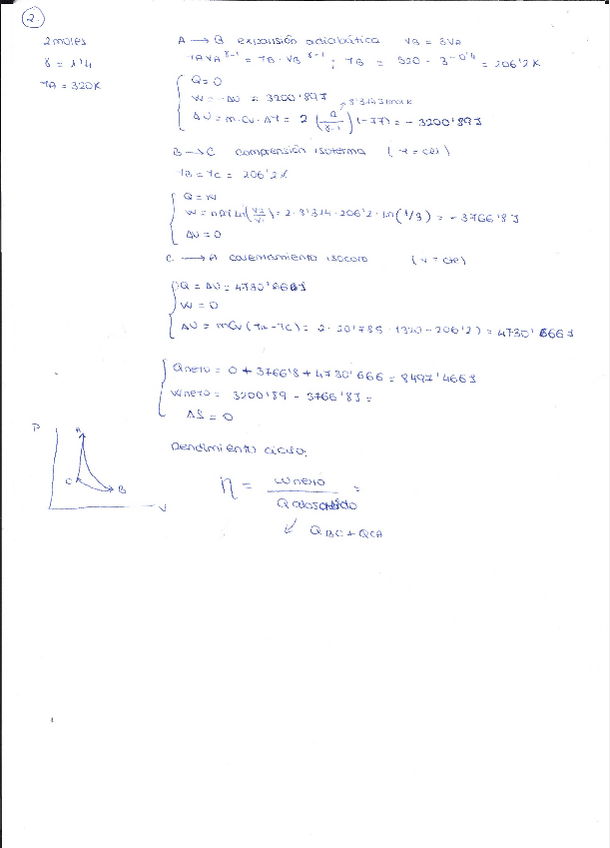 2.
2 moles
γ = 1'4
TA = 320K
A → B expansión adiabática VB = 3VA
TAVA^γ-1 = TB · VB^γ-1 ; TB = 320 · 3^-0'4 = 206'2K
Q = 0
W = -ΔU = 3200'89J
8'314 J/mol K
ΔU = m·Cv·ΔT = 2 (R/γ-1) (-77) = - 3200'89J
B → C compresión isoterma (T = cte)
TB = TC = 206'2K
Q = W
W = nRT Ln(V2/V1) = 2·8'314·206'2·ln(1/3) = - 3766'8J
ΔU = 0
C → A calentamiento isocoro (V = cte)
Q = ΔU = 4730'666J
W = 0
ΔU = mCv (TA - TC) = 2·20'785·(320-206'2) = 4730'666J
Qneto = 0 + 3766'8 + 4730'666 = 8497'466J
Wneto = 3200'89 - 3766'8J =
ΔS = 0
P
A
C
B
V
Rendimiento ciclo:
η = Wneto / Q absorbido =
↙ QBC + QCA